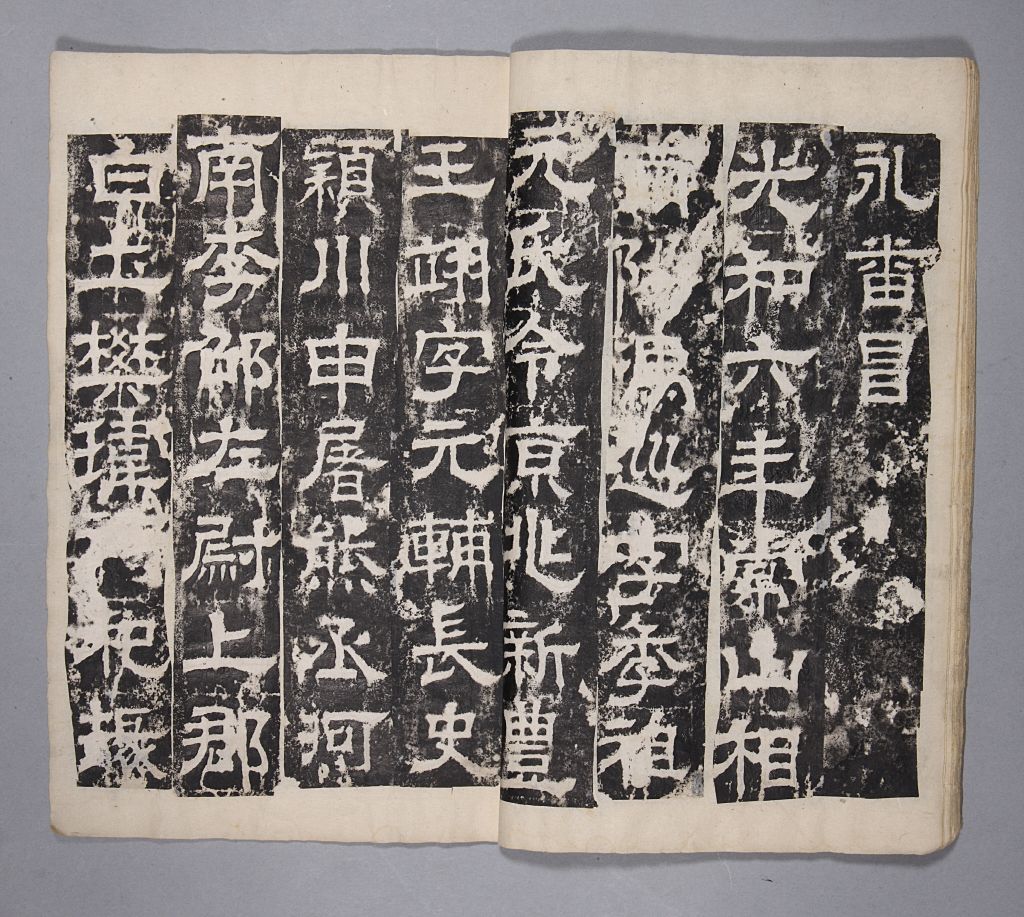 永番昌
光和六年常山相
南陽馮巡字季祖
元氏令京兆新豐
王翊字元輔長史
潁川申屠熊丞河
南李邵左尉上郡
白土樊瑋祀掾